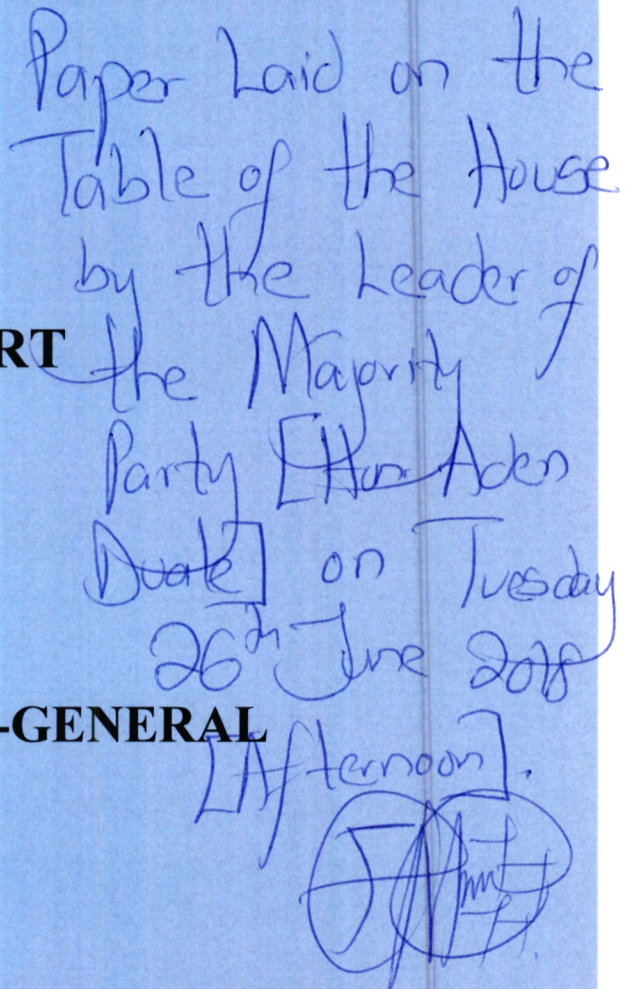 Paper Laid on the
Table of the House
by the Leader of
RT
the Majority
Party [Hon Aden
Duale] on Tuesday
26th June 2018
-GENERAL
[Afternoon].